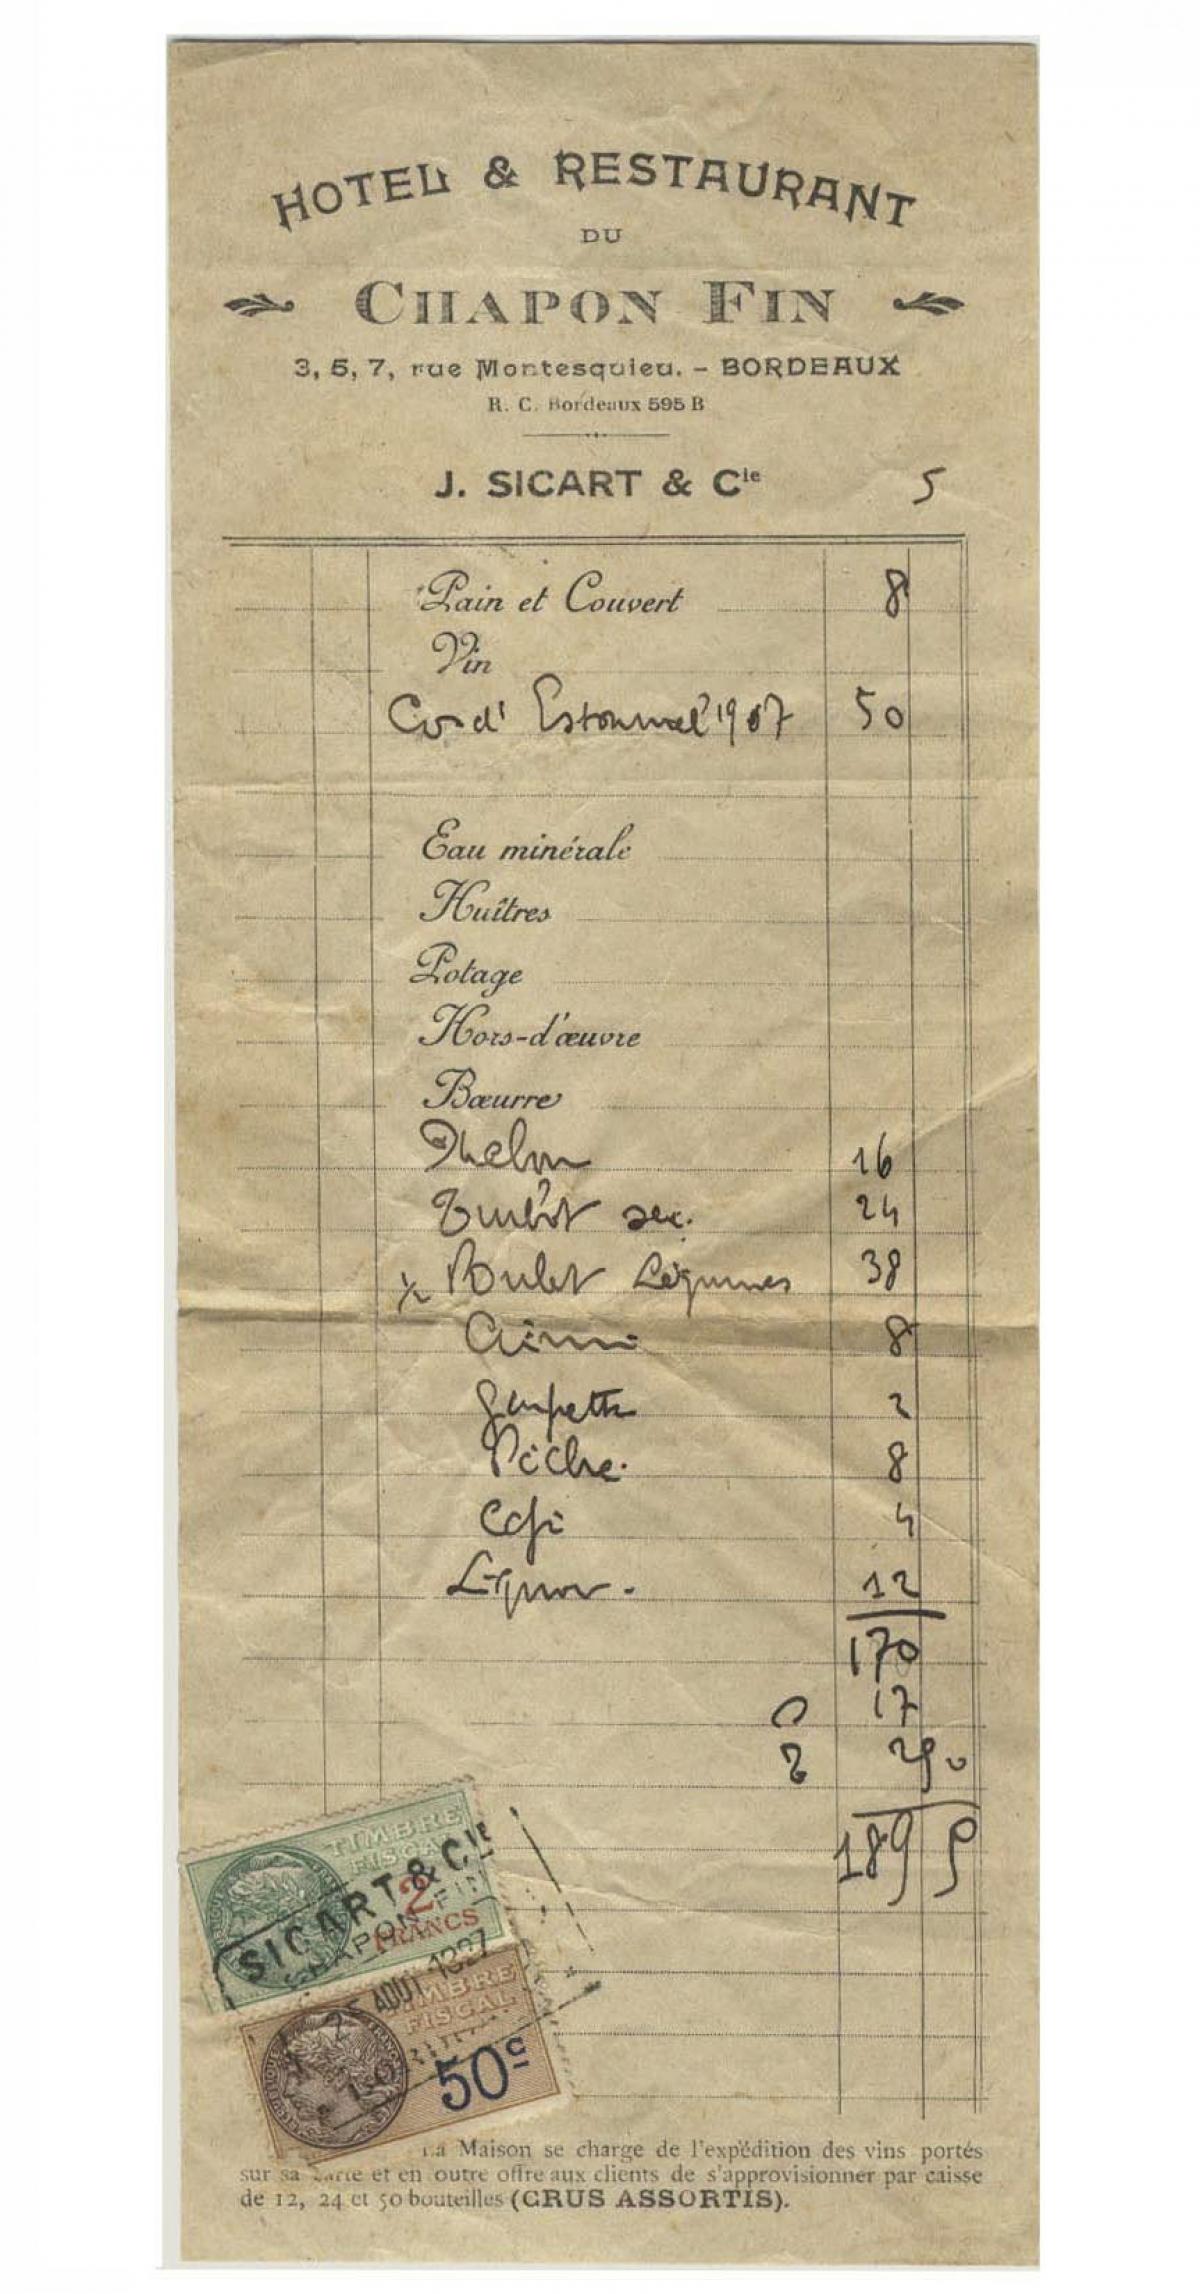 HOTEL & RESTAURANT
DU
CHAPON FIN
3, 5, 7, rue Montesquieu. - BORDEAUX
R. C. Bordeaux 595 B
J. SICART & Cie 5
Pain et Couvert 8
Vin
Cos d' Estournel 1907 50
Eau minérale
Huîtres
Potage
Hors-d'œuvre
Bœurre
Melon 16
Turbot sec. 24
1/2 Poulet Légumes 38
8
2
Pêche. 8
Café 4
Liqueur. 12
170
17
2 90
189 9
TIMBRE
FISCAL
2
FRANCS
SICART & CIE
CHAPON FIN
2 AOUT 1927
TIMBRE
FISCAL
50c
La Maison se charge de l'expédition des vins portés
sur sa carte et en outre offre aux clients de s'approvisionner par caisse
de 12, 24 et 50 bouteilles (CRUS ASSORTIS).